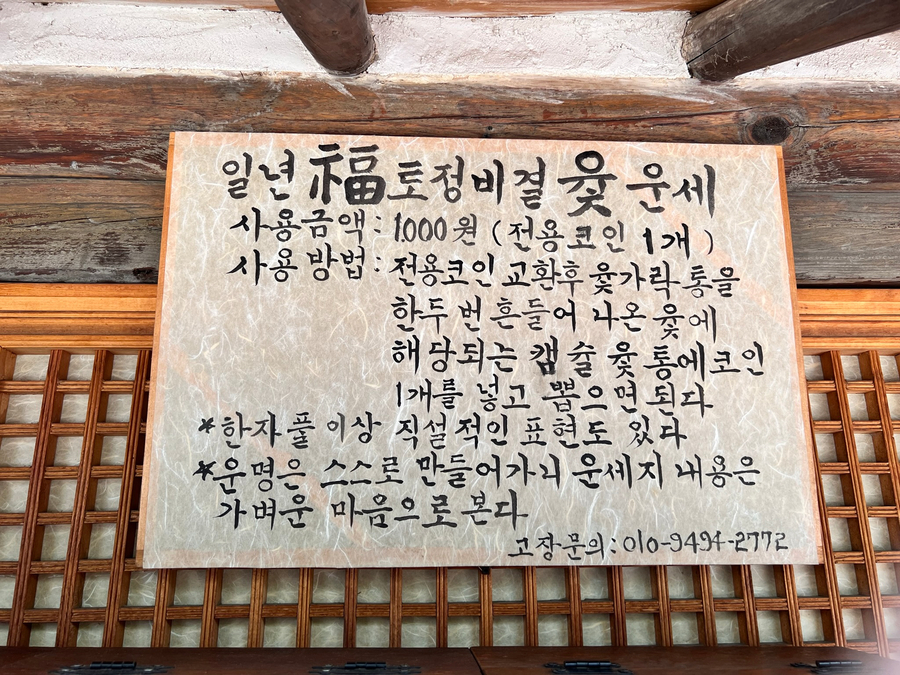 일년 福 토정비결 윷 운세
사용금액: 1.000원 (전용코인 1개)
사용방법: 전용코인 교환후 윷가락통을
한두번 흔들어 나온 윷에
해당되는 캡슐 윷통에 코인
1개를 넣고 뽑으면 된다
*한자풀이상 직설적인 표현도 있다
*운명은 스스로 만들어가니 운세지 내용은
가벼운 마음으로 본다
고장문의: 010-9494-2772